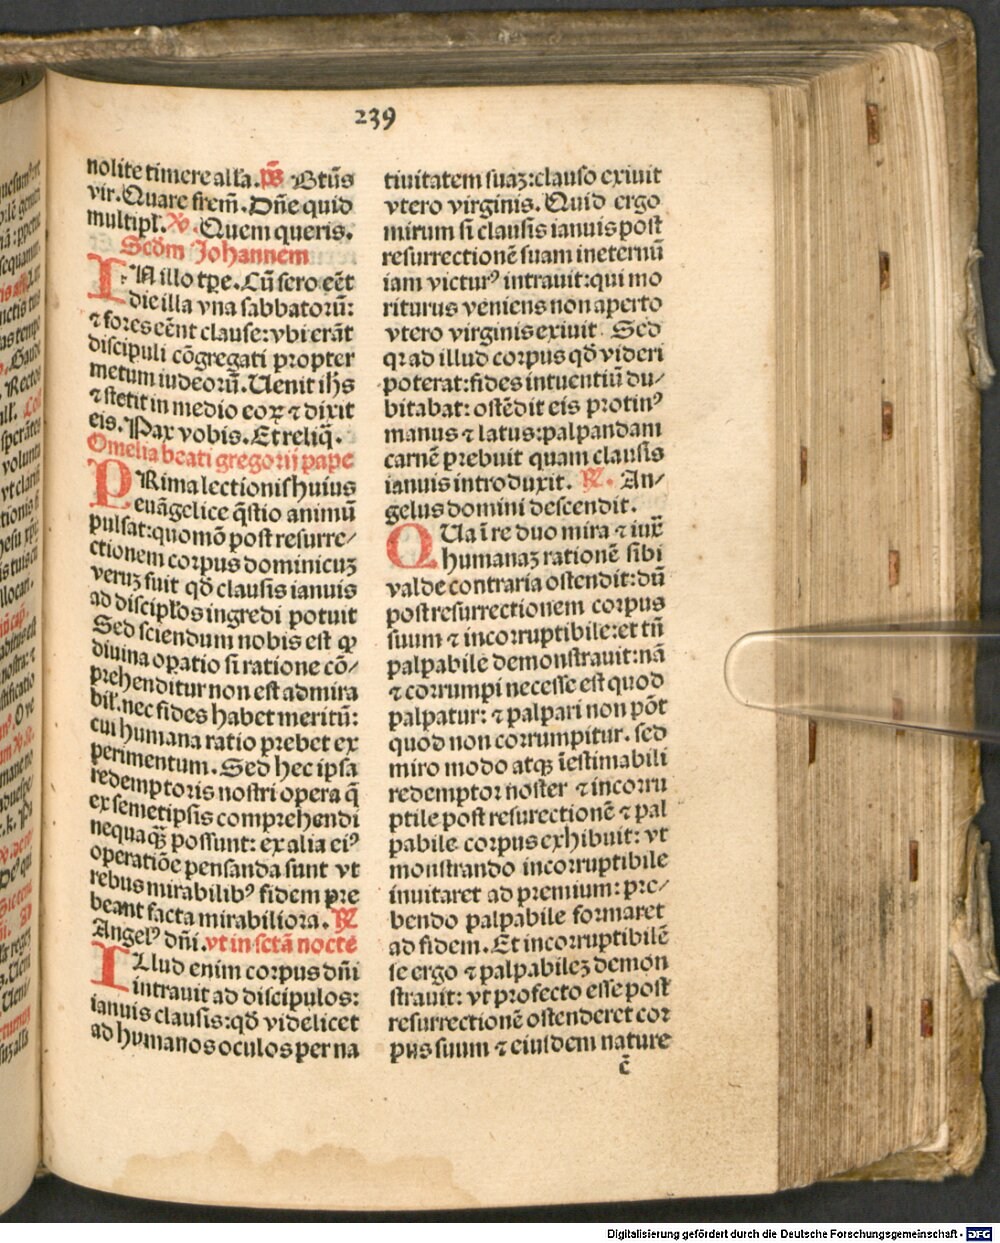 239
nolite timere alľa. ps̄ Btūs
vir. Quare frem̄. Dn̄e quid
multipł. ꝟ. Quem queris.
Scd̄m Johannem
IN illo tꝑe. Cū sero eēt
die illa vna sabbatorū:
⁊ fores eēnt clause: vbi erāt
discipuli cōgregati propter
metum iudeorū. Uenit ih̄s
⁊ stetit in medio eoꝝ ⁊ dixit
eis. Pax vobis. Et reliq̄.
Omelia beati gregorij pape
PRima lectionis huius
euāgelice q̄stio animū
pulsat: quomō post resurre⸗
ctionem corpus dominicuꝫ
veruꝫ fuit qd̄ clausis ianuis
ad discipłos ingredi potuit
Sed sciendum nobis est ꝙ
diuina oꝑatio si ratione cō⸗
prehenditur non est admira
bił. nec fides habet meritū:
cui humana ratio prebet ex
perimentum. Sed hec ipsa
redemptoris nostri opera q̄
ex semetipsis comprehendi
nequaqꝫ̄ possunt: ex alia eiꝰ
operatiōe pensanda sunt vt
rebus mirabilibꝰ fidem pre
beant facta mirabiliora. ꝶ
Angelꝰ dn̄i. vt in sctā nocte
ILlud enim corpus dn̄i
intrauit ad discipulos:
ianuis clausis: qd̄ videlicet
ad humanos oculos per na
tiuitatem suaꝫ: clauso exiuit
vtero virginis. Quid ergo
mirum si clausis ianuis post
resurrectionē suam ineternū
iam victurꝰ intrauit: qui mo
riturus veniens non aperto
vtero virginis exiuit. Sed
qꝛ ad illud corpus qd̄ videri
poterat: fides intuentiū du⸗
bitabat: ostēdit eis protinꝰ
manus ⁊ latus: palpandam
carnē prebuit quam clausis
ianuis introduxit. ꝶ. An⸗
gelus domini descendit.
QUa ī re duo mira ⁊ iux̄
humanaꝫ rationē sibi
valde contraria ostendit: dū
post resurrectionem corpus
suum ⁊ incorruptibile: et tn̄
palpabile demonstrauit: nā
⁊ corrumpi necesse est quod
palpatur: ⁊ palpari non pōt
quod non corrumpitur. sed
miro modo atqꝫ īestimabili
redemptor noster ⁊ incorru
ptile post resurectionē ⁊ pal
pabile corpus exhibuit: vt
monstrando incorruptibile
inuitaret ad premium: pre⸗
bendo palpabile formaret
ad fidem. Et incorruptibilē
se ergo ⁊ palpabileꝫ demon
strauit: vt profecto esse post
resurrectionē ostenderet cor
pus suum ⁊ eiusdem nature
c̄
Digitalisierung gefördert durch die Deutsche Forschungsgemeinschaft - DFG